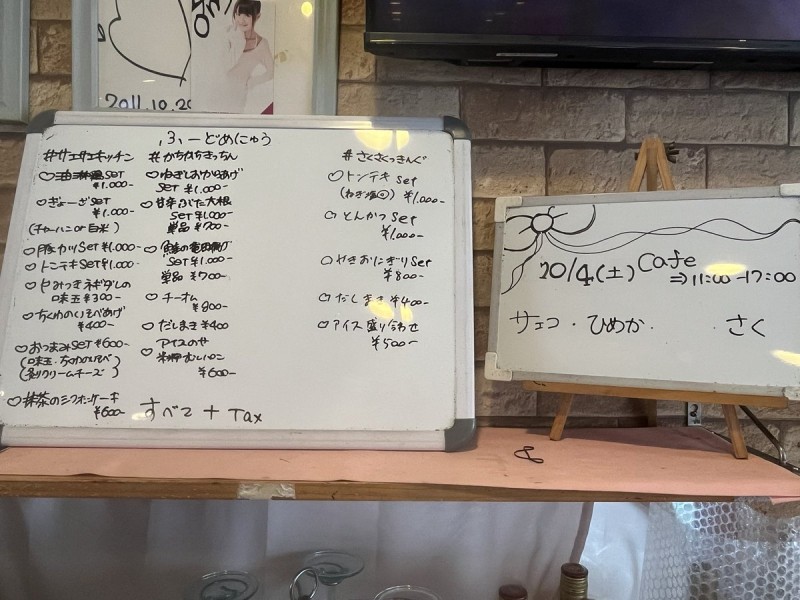 2011.10.20
ふーどめにゅう
#サエサエキッチン
SET
¥1.000-
♡ぎょーざSET
¥1.000-
(チャーハン or 白米)
♡豚カツSET ¥1.000-
♡トンテキSET ¥1.000-
♡やみつきネギダレの
味玉 ¥300-
♡ちくわのいそべあげ
¥400-
♡おつまみSET ¥600-
クリームチーズ
♡抹茶のシフォンケーキ
¥600-
♡ゆずしおからあげ
SET ¥1.000-
SET ¥1.000-
単品 ¥700-
SET ¥1.000-
単品 ¥700-
♡チーオム
¥800-
♡だしまき ¥400
♡アイスのせ
¥600-
すべて + Tax
#さくさくっきんぐ
♡トンテキ set
(ねぎ塩) ¥1,000-
♡とんかつ set
¥1,000-
♡やきおにぎり set
¥800-
♡だしまき ¥400-
♡アイス盛り合わせ
¥500-
20/4(土) Cafe
⇒11:00-17:00
サエコ・ひめか・ ・さく